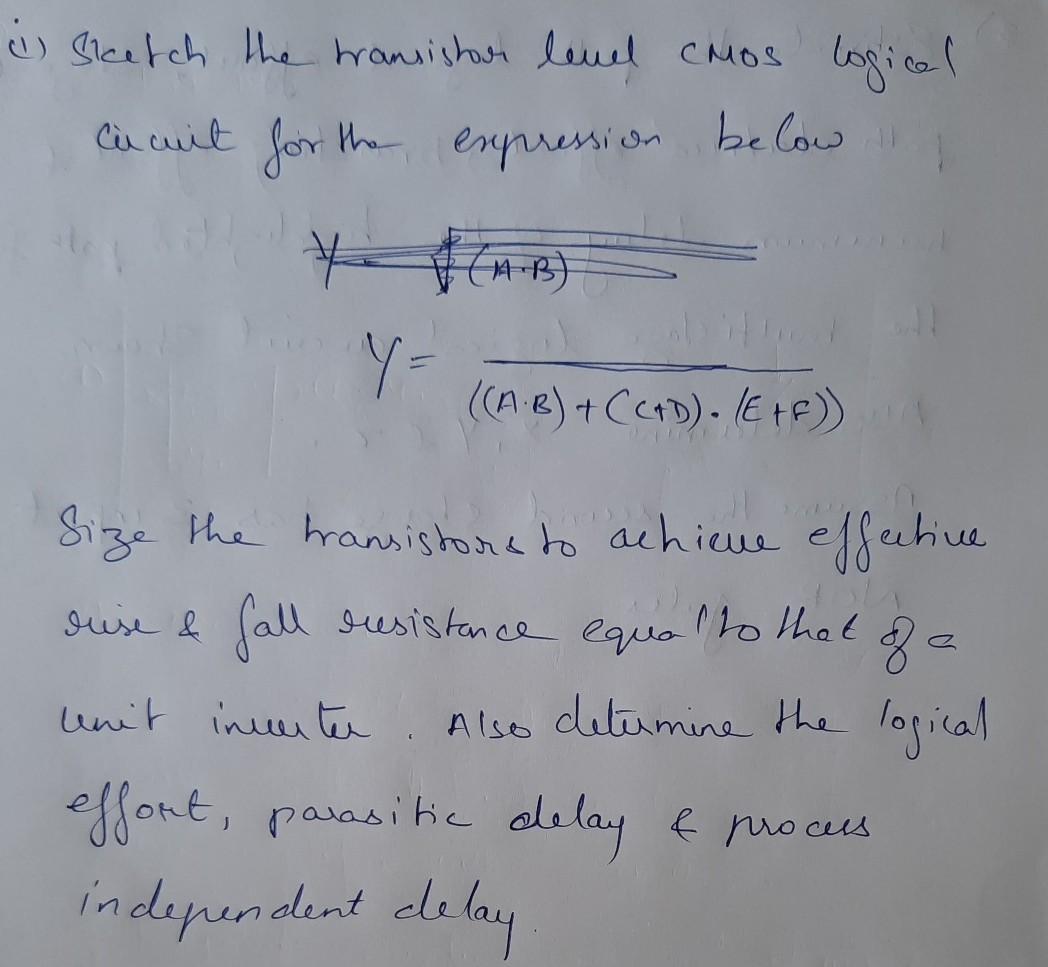 (i) Sketch the transistor level CMOS logical
circuit for the expression below
Y = (A·B)
Y =
((A·B) + (C+D) · (E+F))
Size the transistors to achieve effective
rise & fall resistance equal to that of a
unit inverter. Also determine the logical
effort, parasitic delay & process
independent delay.